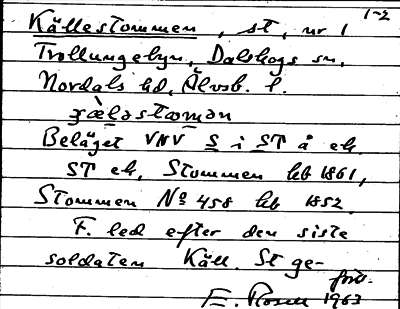 1-2
Källestommen, st, nr 1
Trollungebyn, Dalskogs sn,
Nordals hd, Älvsb. l.
ɣæ̀ləstomən
Beläget VNV S i ST å ek.
ST ek, Stommen hb 1861,
Stommen No 458 hb 1852.
F. led efter den siste
soldaten Käll. St ge-
forts.
E. Rosell 1963